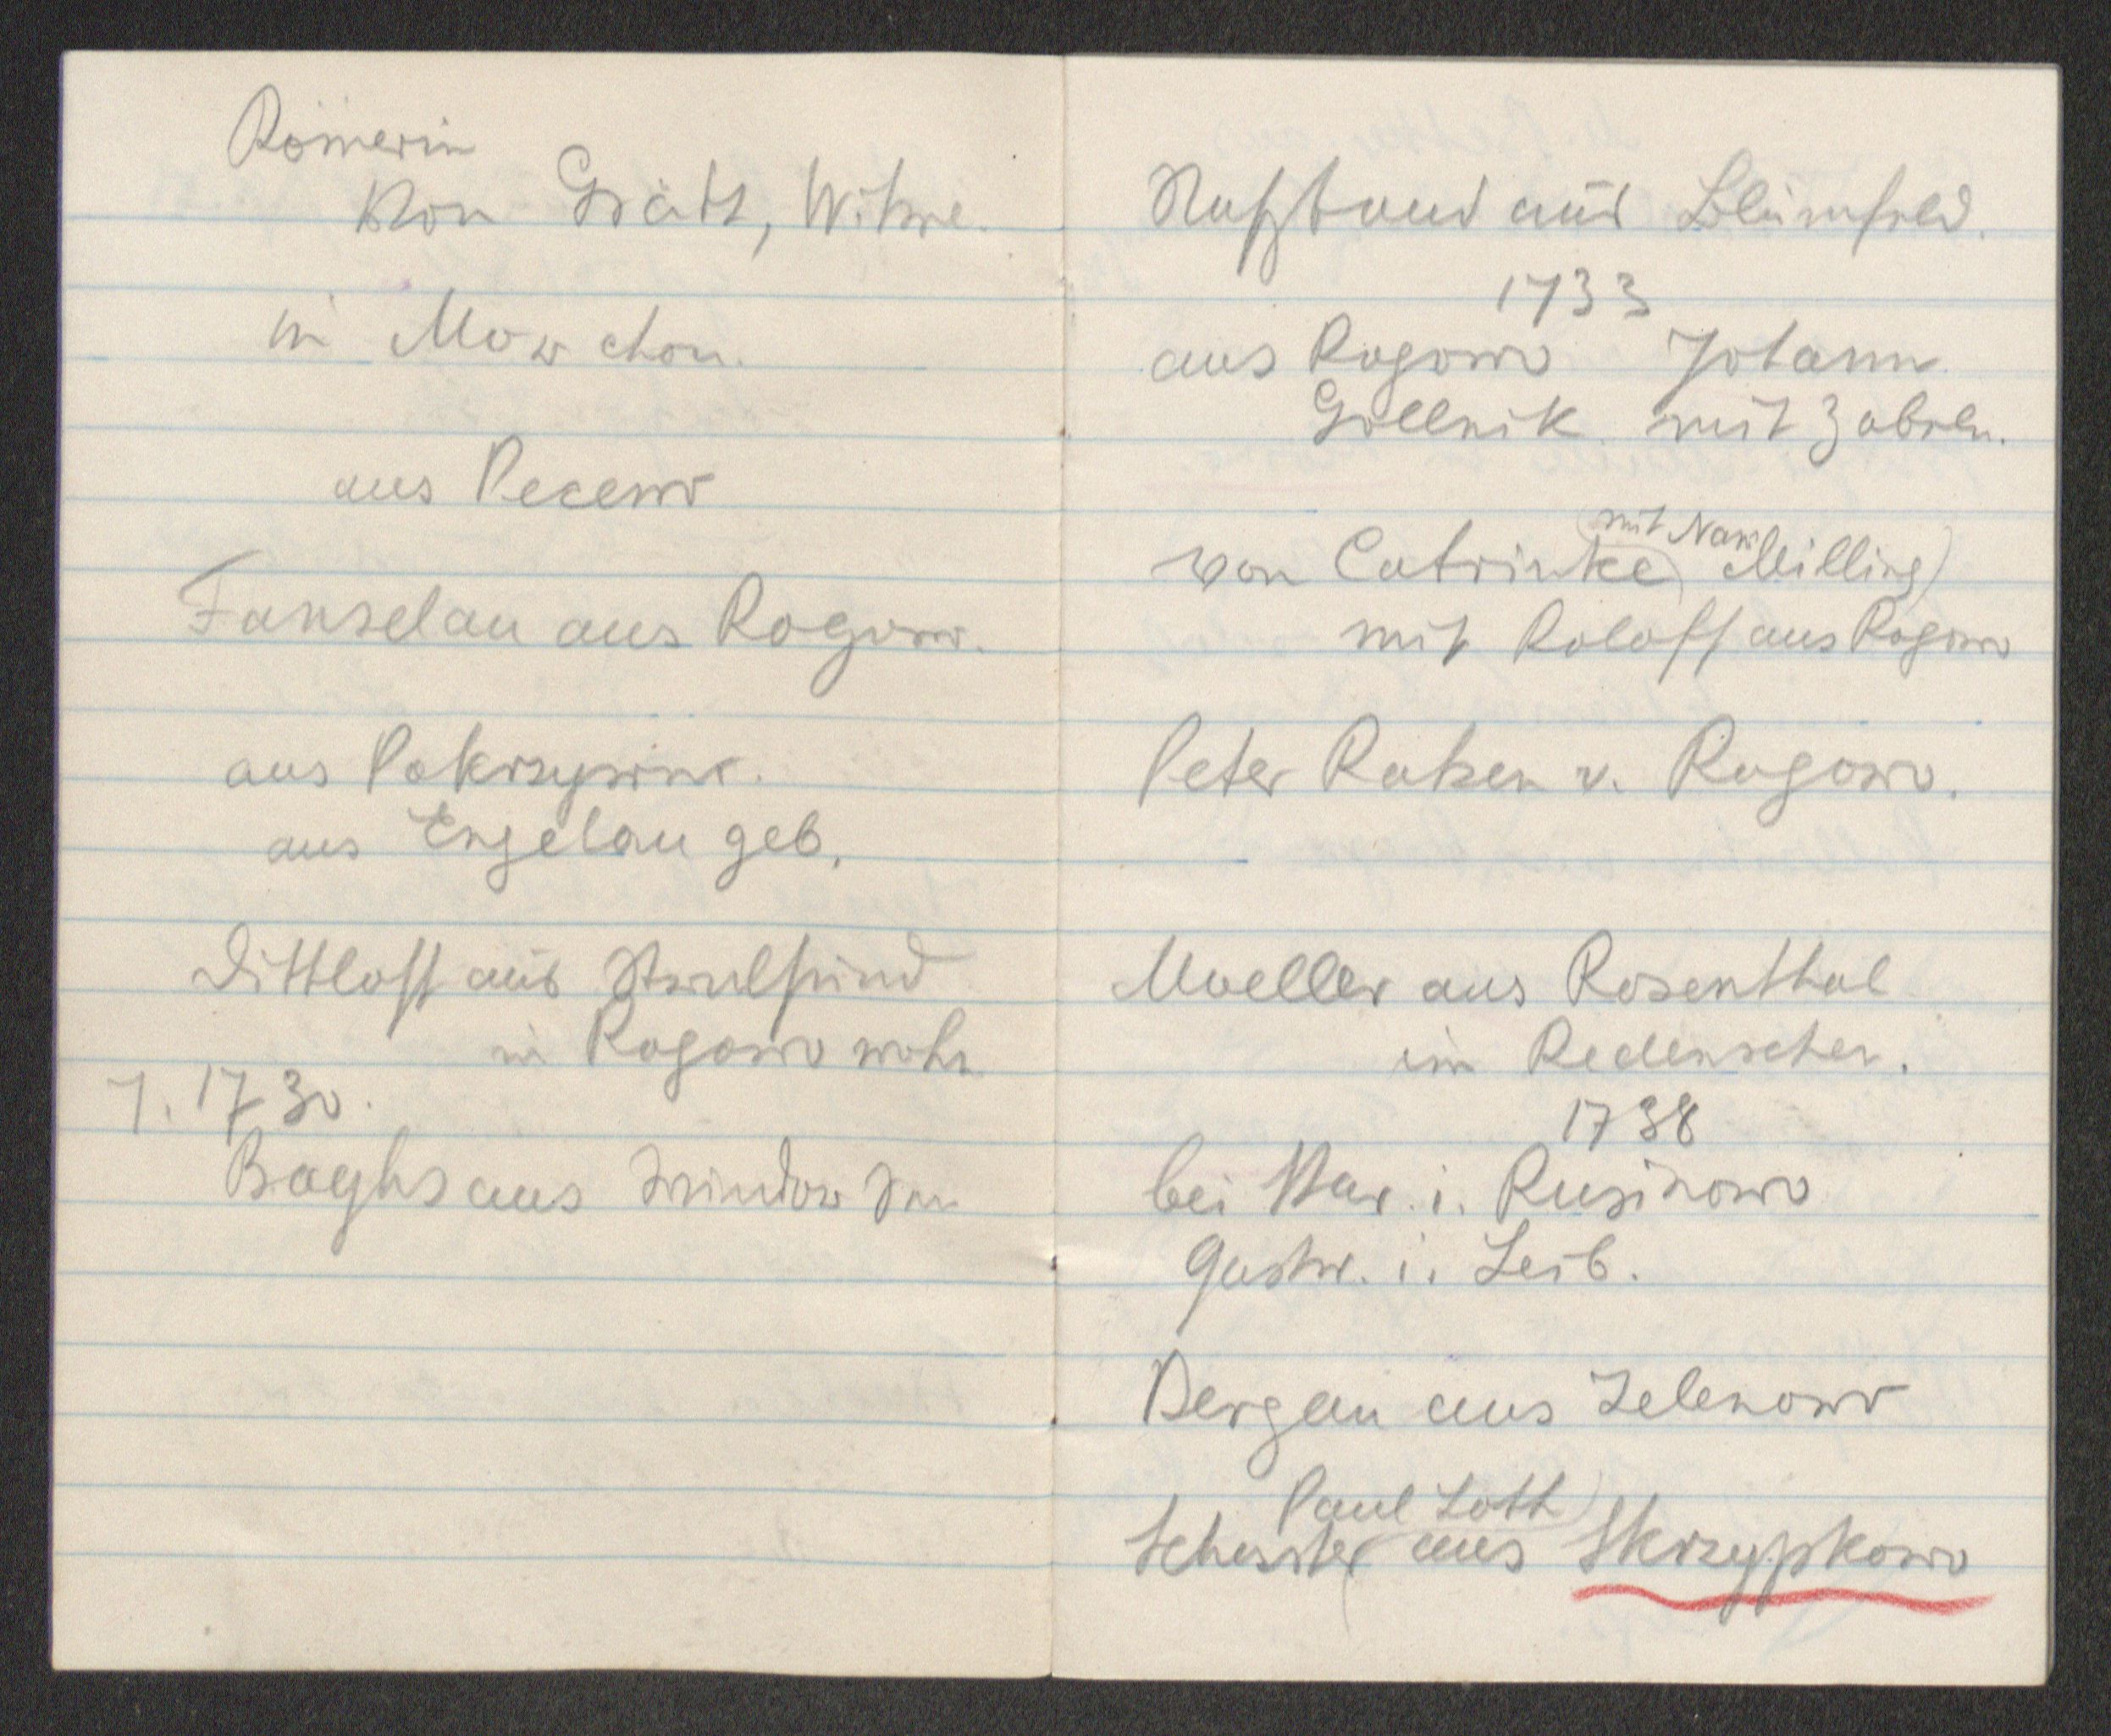 Römerin
von Grätz, Witwe.
in Mowchon.
aus Pecewo
Fanselau aus Rogowo.
aus Pokrzywnc.
aus Engelau geb.
Dittloff aus Stralsund
in Rogowo wohn
7. 1730.
Baghs aus
aus Blumfeld.
1733
aus Rogowo Johann
Gollnik mit Zabeln.
(mit Naw. Milling)
von Catrinke
mit Roloff aus Rogowo
Peter Ratzen v. Rogowo.
Moeller aus Rosenthal
im Redenschen.
1738
bei i. Rusinowo
Gastw. i. Leib.
Bergau aus Zelenowo
Paul Loth
Schuster aus Skrzypkowo